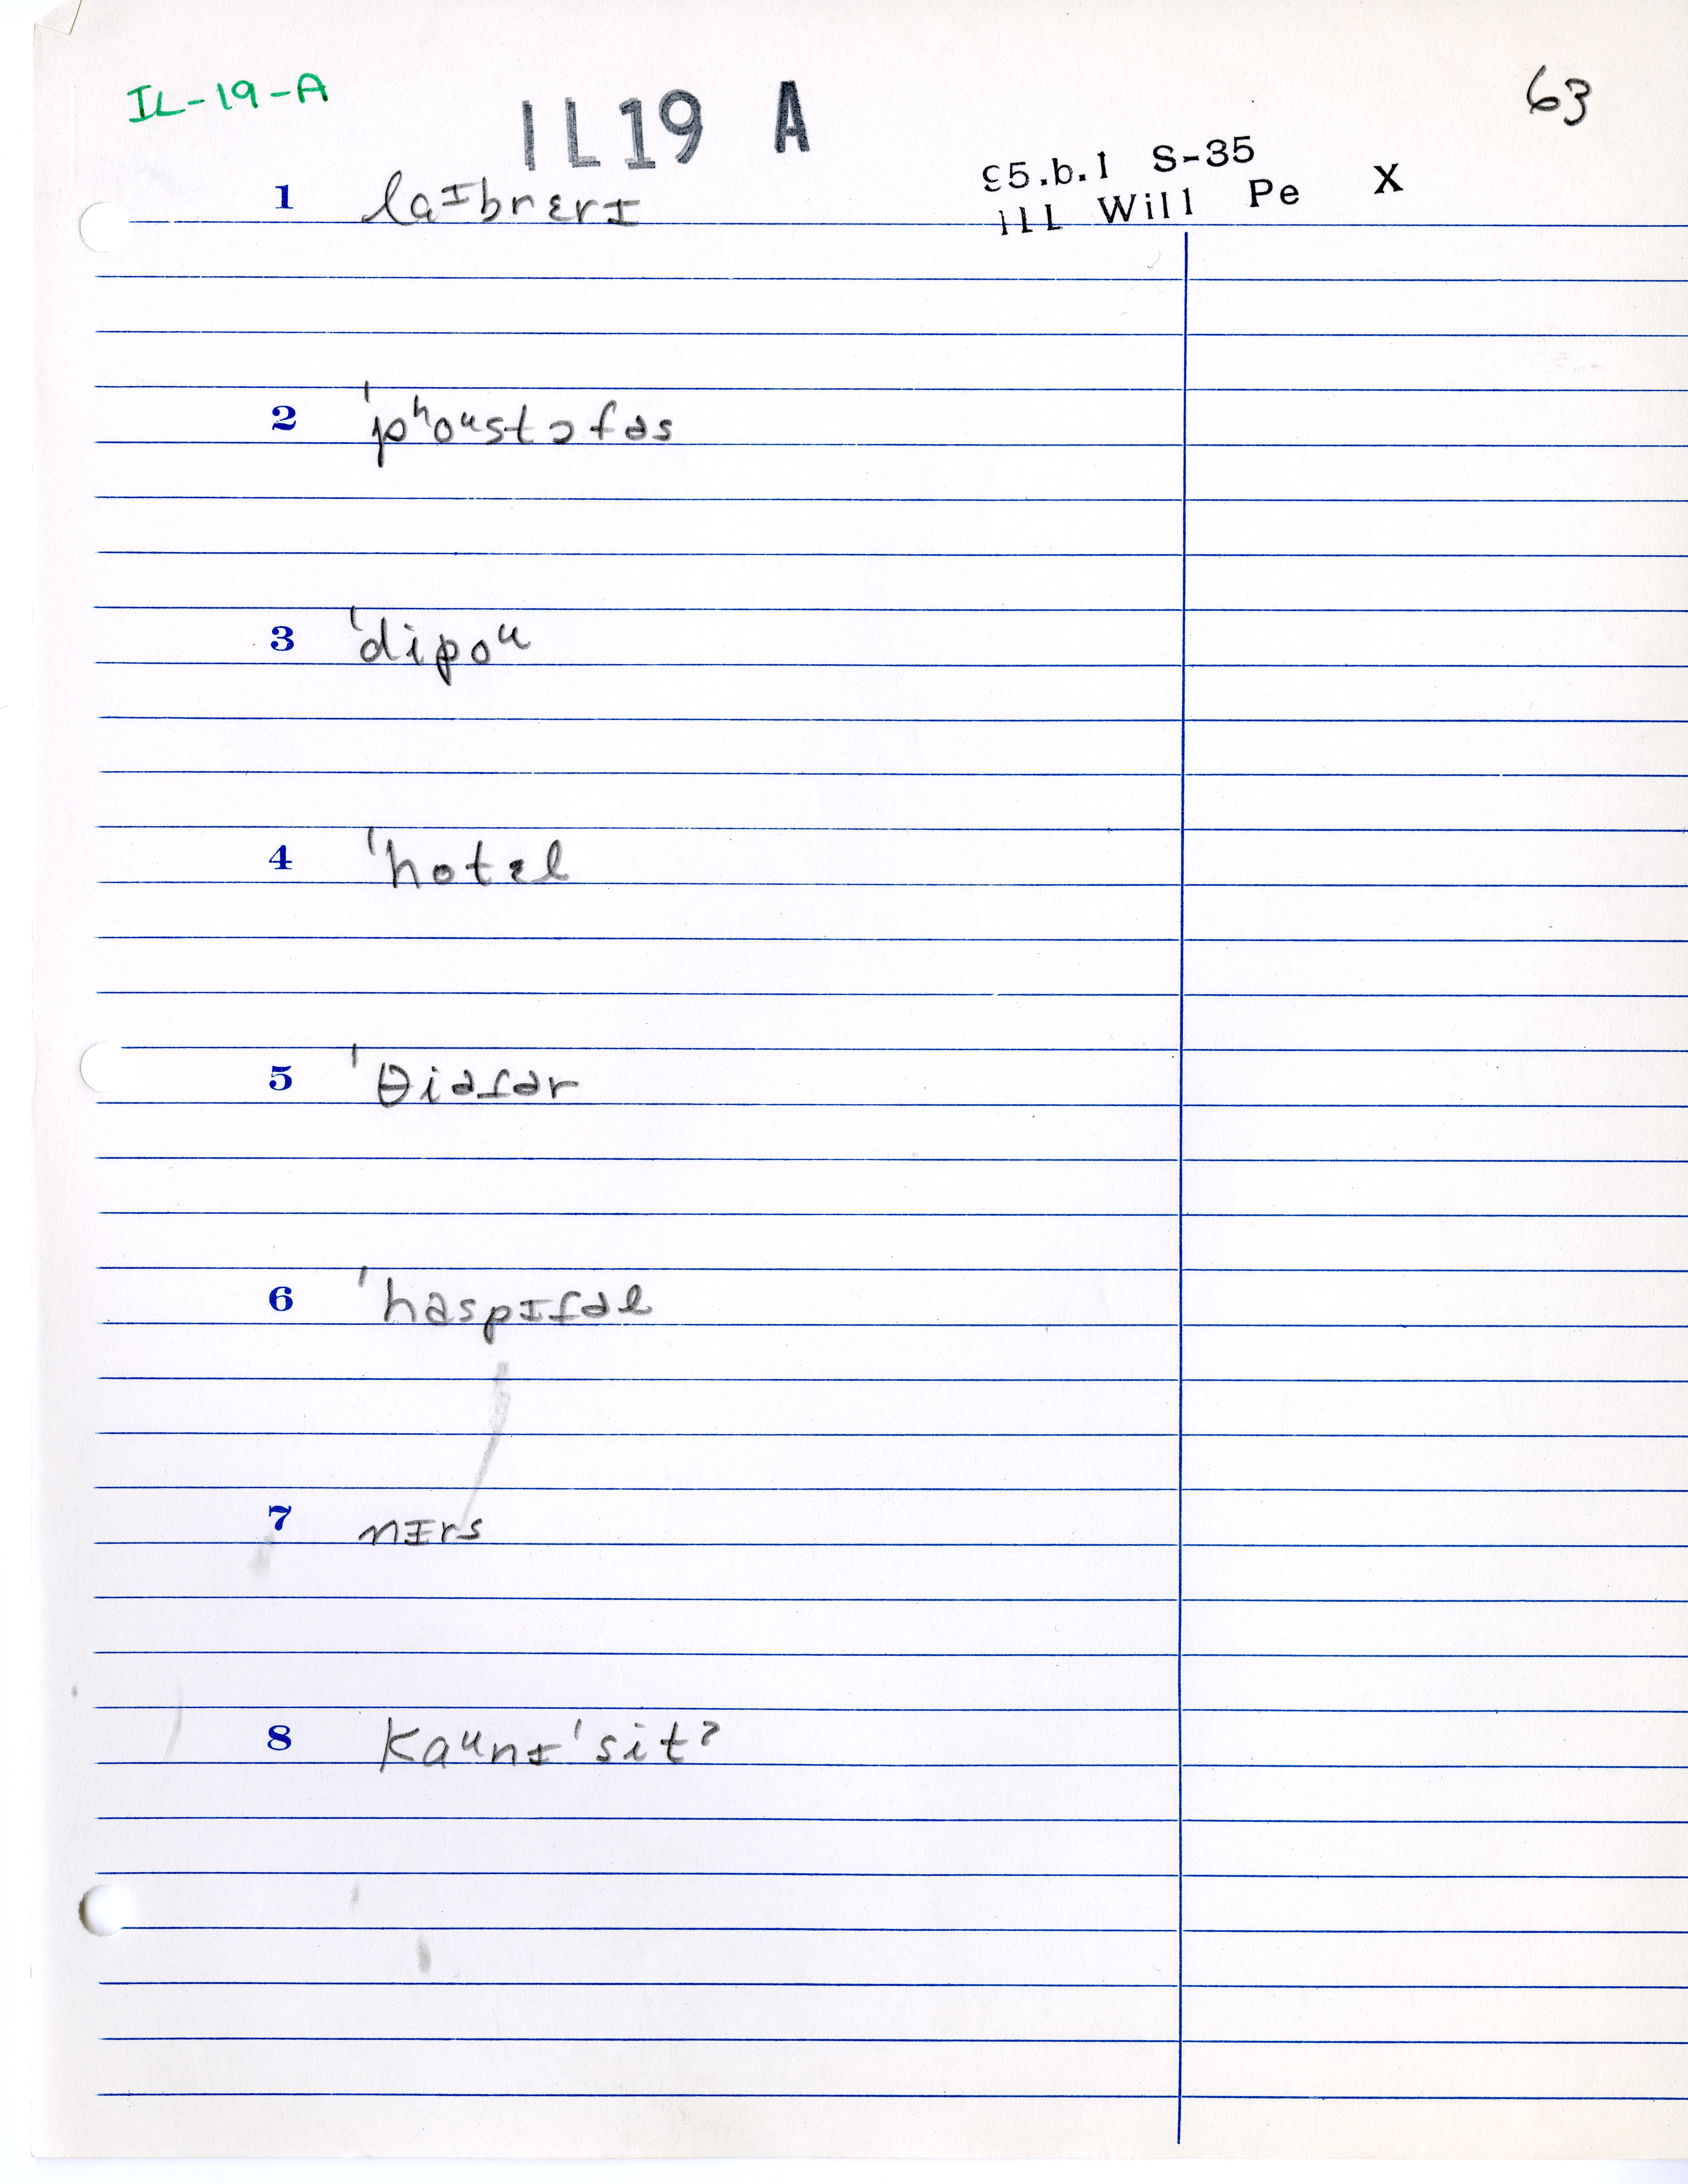 IL-19-A
IL19 A
63
95.b.1 S-35
ILL Will Pe X
1 laᴵbrɛrɪ
2 ˈpʰoᵘstɔfəs
3 ˈdipoᵘ
4 ˈhotɛl
5 ˈθiəɾər
6 ˈhaspɪɾəl
7 nɪrs
8 kaᵘnɪˈsitˀ